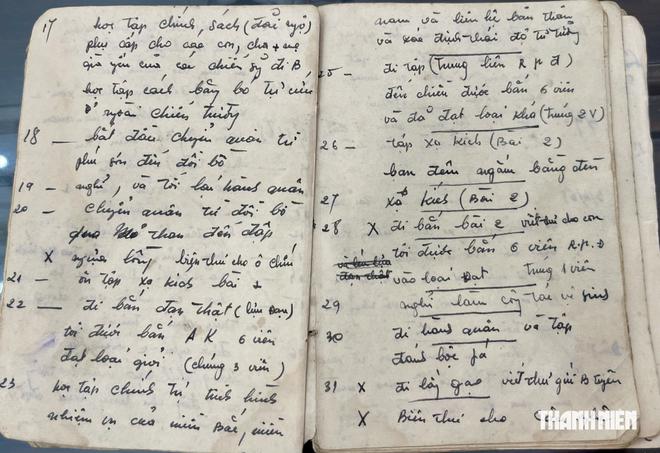 17 học tập chính, sách (đãi ngộ)
phụ cấp cho các con, cha + mẹ
già yếu của các chiến sỹ đi B
học tập cách băng bó tự cứu
ở ngoài chiến trường
18 — bắt đầu chuyển quân từ
phú sơn đến đồi bô
19 — nghỉ, và tối lại hành quân
20 — chuyển quân từ đồi bô
qua than đến đập
X ngừa biện thư cho ô chấn
21 — ôn tập xạ kích bài 2
22 — đi bắn đạn thật (liên Đan)
tôi được bắn AK 6 viên
đạt loại giỏi (chúng 3 viên)
23 học tập chính trị tình hình
nhiệm vụ của miền Bắc, miền
nam và liên hệ bản thân
và xác định thái độ tư tưởng
25 — đi tập (trung liên R.p.đ)
đến chiều được bắn 6 viên
và đã đạt loại khá (trúng 2V)
26 — tập xạ kích (Bài 2)
ban đêm ngắm bằng đèn
27 xạ kích (Bài 2)
28 X đi bắn bài 2 viết thư cho con
tôi được bắn 6 viên R.p.Đ
vào loại đạt trúng 1 viên
29 nghỉ làm công tác vệ sinh
30 đi hành quân và tập
đánh bộc phá
31 X đi lấy gạo viết thư gửi B Tuyên
X Biên thư cho
THANH NIÊN